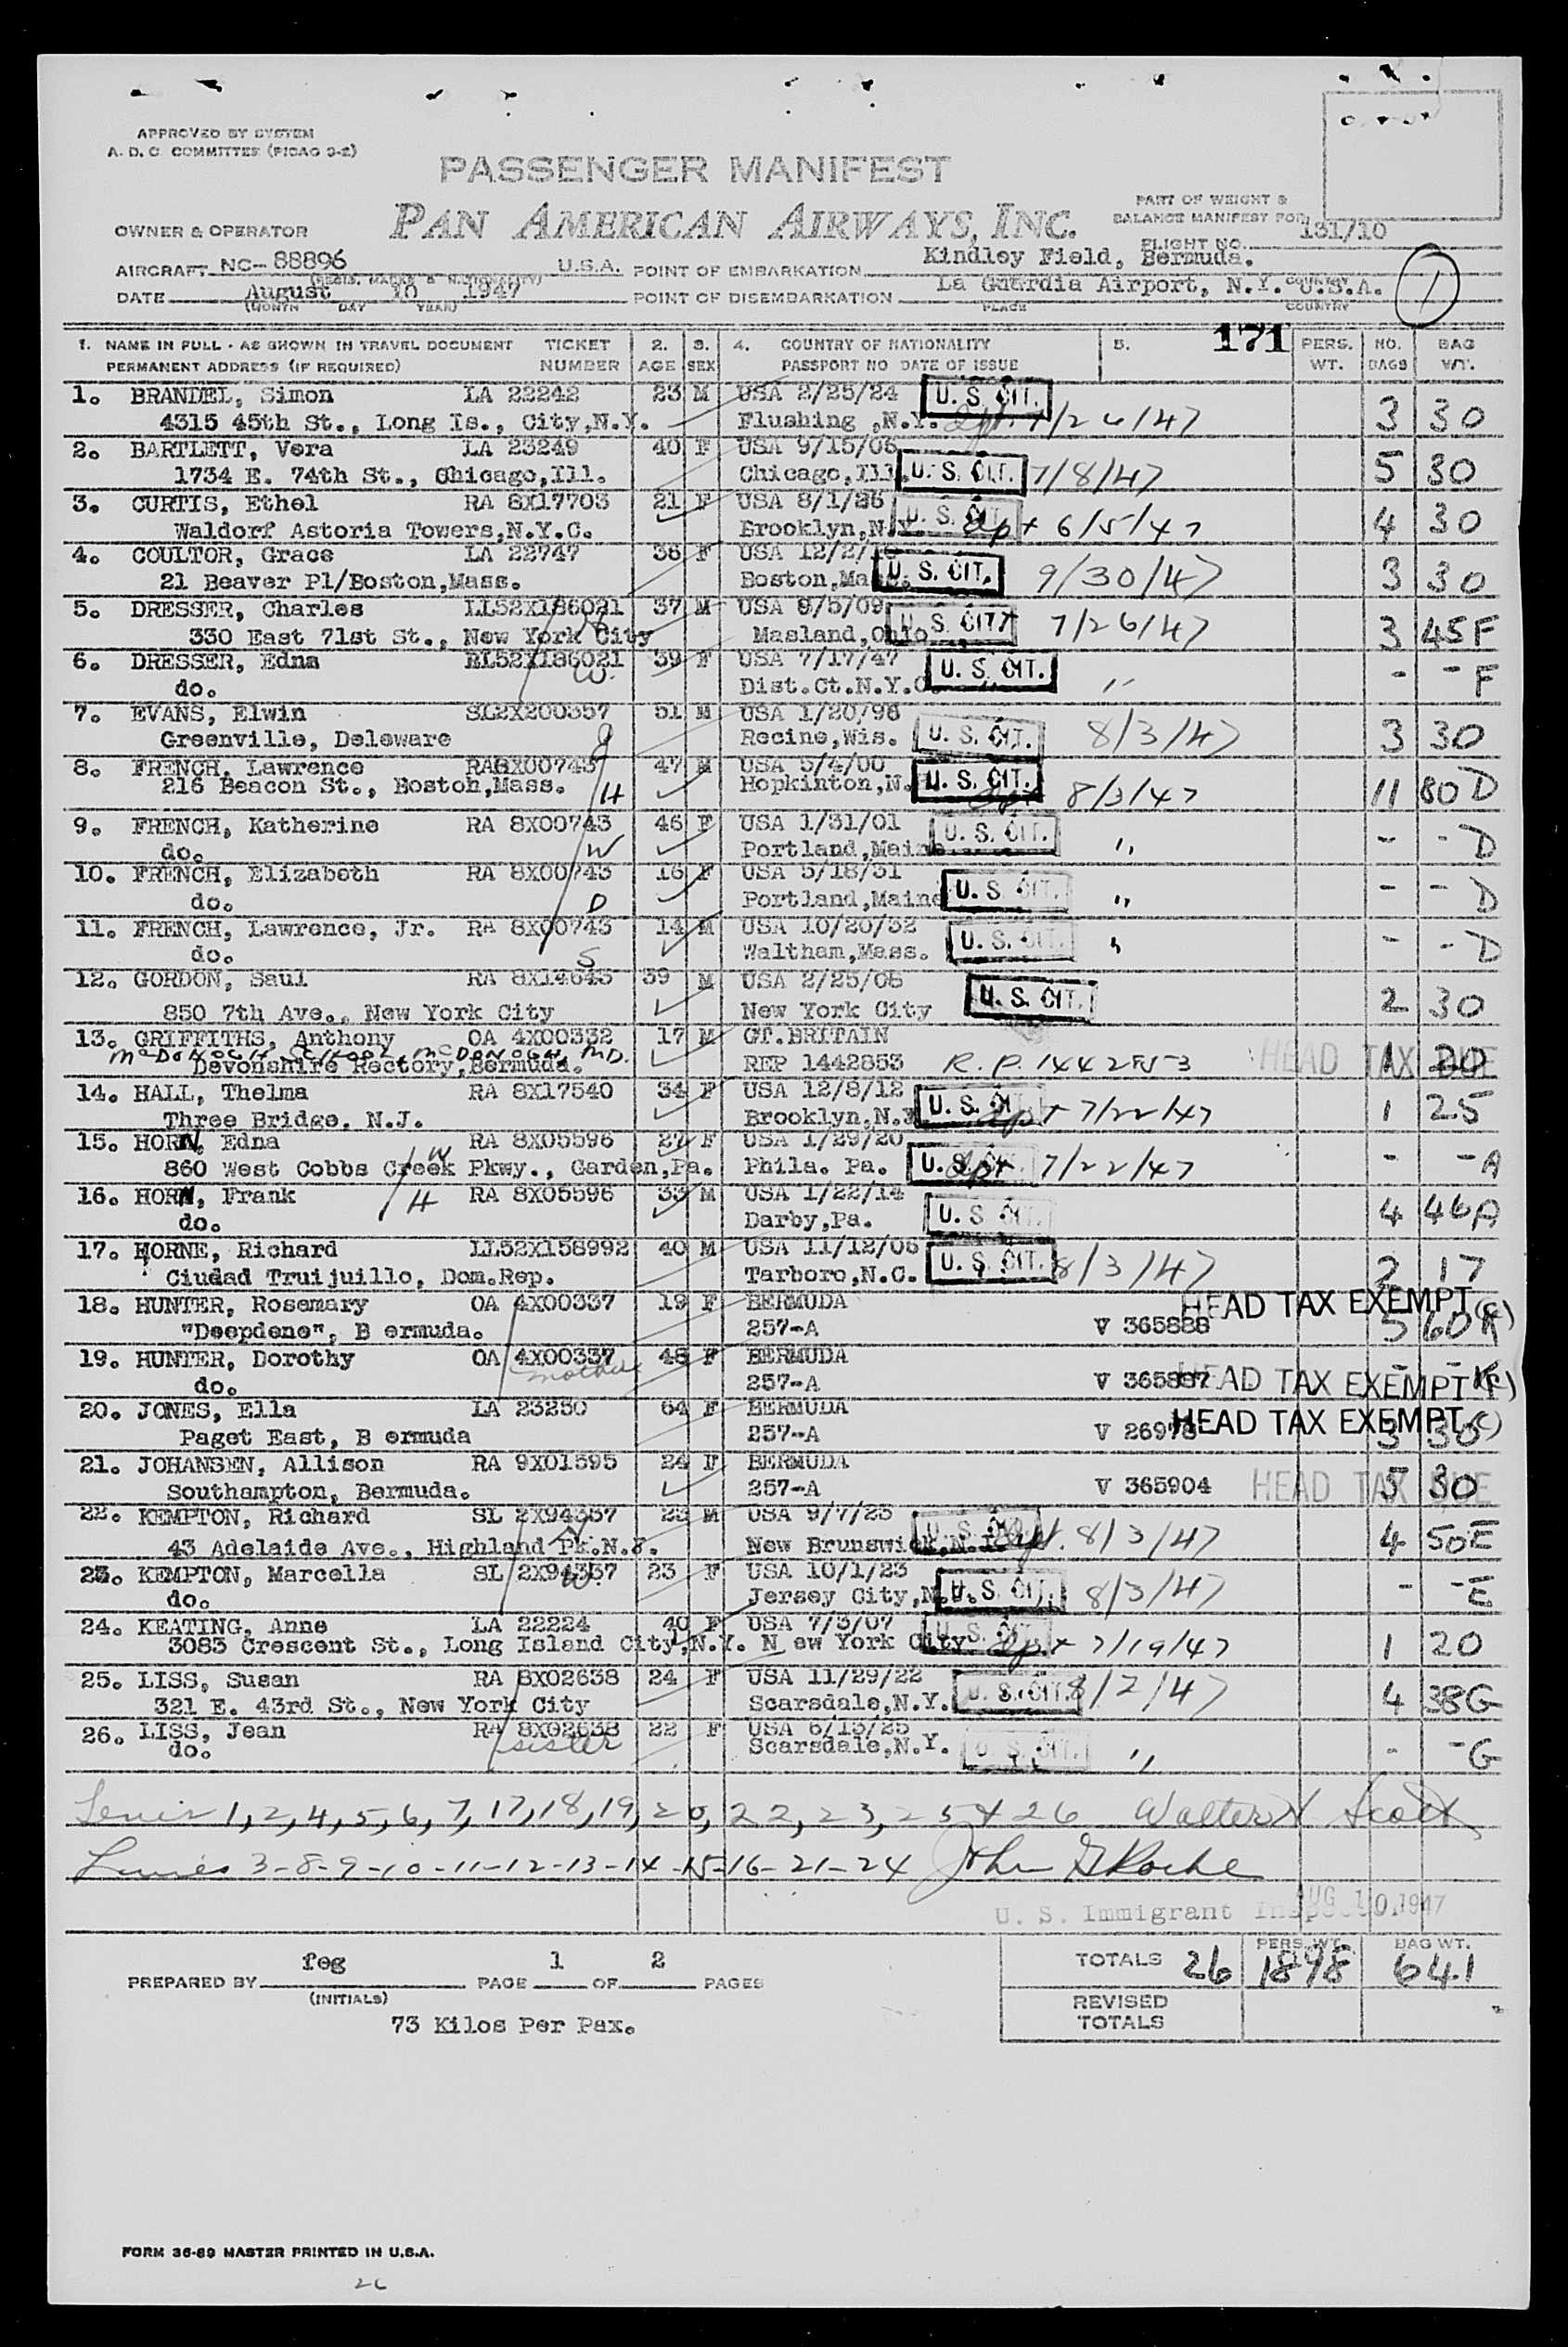 APPROVED BY SYSTEM
A. D. C. COMMITTEE (PICAO 3-2)
PASSENGER MANIFEST
PART OF WEIGHT &
BALANCE MANIFEST FOR
OWNER & OPERATOR PAN AMERICAN AIRWAYS, INC.
FLIGHT NO. 131/10
AIRCRAFT NC- 88896 U.S.A. POINT OF EMBARKATION Kindley Field, Bermuda.
(REGIS. MARKS & NATIONALITY) PLACE COUNTRY
DATE August 10 1947 POINT OF DISEMBARKATION La Guardia Airport, N.Y. U.S.A. 1
(MONTH DAY YEAR) PLACE COUNTRY
1. NAME IN FULL - AS SHOWN IN TRAVEL DOCUMENT TICKET 2. 3. 4. COUNTRY OF NATIONALITY 5. 171 PERS. NO. BAG
PERMANENT ADDRESS (IF REQUIRED) NUMBER AGE SEX PASSPORT NO DATE OF ISSUE WT. BAGS WT.
1. BRANDEL, Simon LA 22242 23 M USA 2/25/24 U. S. CIT.
4315 45th St., Long Is., City,N.Y. Flushing ,N.Y. 7/26/47 3 30
2. BARTLETT, Vera LA 23249 40 F USA 9/15/06
1734 E. 74th St., Chicago,Ill. Chicago,Ill. U. S. CIT. 7/8/47 5 30
3. CURTIS, Ethel RA 8X17703 21 F USA 8/1/26 U. S. CIT.
Waldorf Astoria Towers,N.Y.C. Brooklyn,N.Y. apt 6/5/47 4 30
4. COULTOR, Grace LA 22747 36 F USA 12/2/
21 Beaver Pl/Boston,Mass. Boston,Mass. U. S. CIT. 9/30/47 3 30
5. DRESSER, Charles LL52X186021 37 M USA 9/5/09 U. S. CIT.
330 East 71st St., New York City H Masland,Ohio 7/26/47 3 45F
6. DRESSER, Edna LL52X186021 39 F USA 7/17/47 U. S. CIT.
do. W. Dist.Ct.N.Y.C. " - - F
7. EVANS, Elwin SL2X200357 51 M USA 1/20/96
Greenville, Deleware Racine,Wis. U. S. CIT. 8/3/47 3 30
8. FRENCH, Lawrence RA8X00743 47 M USA 5/4/00
216 Beacon St., Boston,Mass. H Hopkinton,N. U. S. CIT. 8/3/47 11 80 D
9. FRENCH, Katherine RA 8X00743 46 F USA 1/31/01 U. S. CIT.
do. W Portland,Maine " - - D
10. FRENCH, Elizabeth RA 8X00743 16 F USA 5/18/31
do. D Portland,Maine U. S. CIT. " - - D
11. FRENCH, Lawrence, Jr. RA 8X00743 14 M USA 10/20/32
do. S Waltham,Mass. U. S. CIT. " - - D
12. GORDON, Saul RA 8X14643 39 M USA 2/25/08
850 7th Ave., New York City New York City U. S. CIT. 2 30
13. GRIFFITHS, Anthony OA 4X00332 17 M GT.BRITAIN
McDONOGH SCHOOL, McDONOGH, MD.
Devonshire Rectory,Bermuda. REP 1442853 R.P. 1442853 HEAD TAX DUE 1 20
14. HALL, Thelma RA 8X17540 34 F USA 12/8/12
Three Bridge, N.J. Brooklyn,N.Y. U. S. CIT. apt 7/22/47 1 25
15. HORN, Edna RA 8X05596 27 F USA 1/29/20
860 West Cobbs Creek Pkwy., Garden,Pa. W Phila. Pa. U. S. CIT. apt 7/22/47 - - A
16. HORN, Frank RA 8X05596 33 M USA 1/22/14
do. H Darby,Pa. U. S. CIT. 4 46A
17. HORNE, Richard LL52X158992 40 M USA 11/12/06
Ciudad Truijuillo, Dom.Rep. Tarboro,N.C. U. S. CIT. 8/3/47 2 17
18. HUNTER, Rosemary OA 4X00337 19 F BERMUDA HEAD TAX EXEMPT (c)
"Deepdene", B ermuda. 257-A V 365888 5 60K
19. HUNTER, Dorothy OA 4X00337 48 F BERMUDA
do. mother 257-A V 365887 HEAD TAX EXEMPT (c) - - K
20. JONES, Ella LA 23250 64 F BERMUDA
Paget East, B ermuda 257-A V 26978 HEAD TAX EXEMPT (c) 3 30
21. JOHANSEN, Allison RA 9X01595 24 F BERMUDA
Southampton, Bermuda. 257-A V 365904 HEAD TAX DUE 3 30
22. KEMPTON, Richard SL 2X94357 23 M USA 9/7/23
43 Adelaide Ave., Highland Pk.N.J. H New Brunswick,N.J. U. S. CIT. 8/3/47 4 50E
23. KEMPTON, Marcella SL 2X94357 23 F USA 10/1/23
do. W. Jersey City,N.J. U. S. CIT. 8/3/47 - - E
24. KEATING, Anne LA 22224 40 F USA 7/3/07
3083 Crescent St., Long Island City,N.Y. N ew York City U. S. CIT. apt 7/19/47 1 20
25. LISS, Susan RA 8X02638 24 F USA 11/29/22
321 E. 43rd St., New York City Scarsdale,N.Y. U. S. CIT. 8/2/47 4 38G
26. LISS, Jean RA 8X02638 22 F USA 6/13/25
do. sister Scarsdale,N.Y. U. S. CIT. " - - G
1, 2, 4, 5, 6, 7, 17, 18, 19, 20, 22, 23, 25 & 26 Walter Scott
3-8-9-10-11-12-13-14-15-16-21-24 John G Roche
U. S. Immigrant Inspector AUG 10 1947
PREPARED BY feg PAGE 1 OF 2 PAGES
(INITIALS)
TOTALS 26 PERS. WT. 1898 BAG WT. 641
REVISED
TOTALS
73 Kilos Per Pax.
FORM 36-69 MASTER PRINTED IN U.S.A.
26